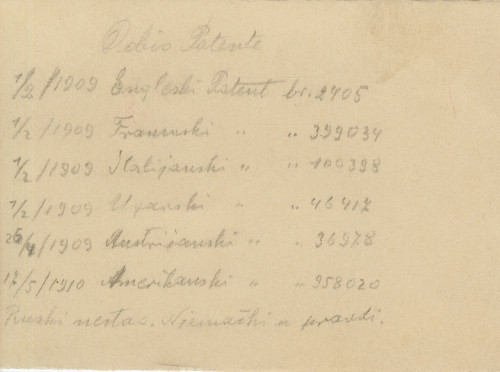 Dobio Patente
1/2/1909 Engleski Patent br. 2405
1/2/1909 Francuski " " 399034
1/2/1909 Italijanski " " 100398
1/2/1909 " " 46417
25/4/1909 Austrijanski " " 36978
17/5/1910 Amerikanski " " 958020
Ruski nestao. Niemački u pravdi.